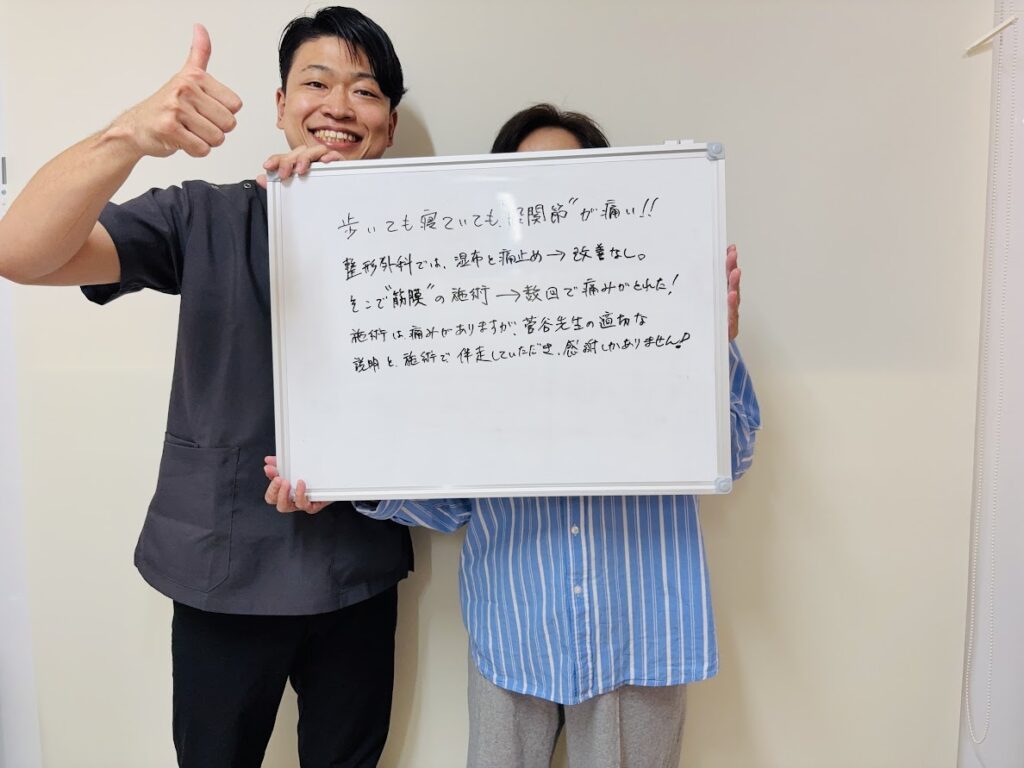 歩いても寝ていても、"股関節"が痛い!!
整形外科では、湿布と痛止め→改善なし。
そこで"筋膜"の施術→数回で痛みがとれた!
施術は痛みがありますが、菅谷先生の適切な
説明と、施術で伴走していただき、感謝しかありません!